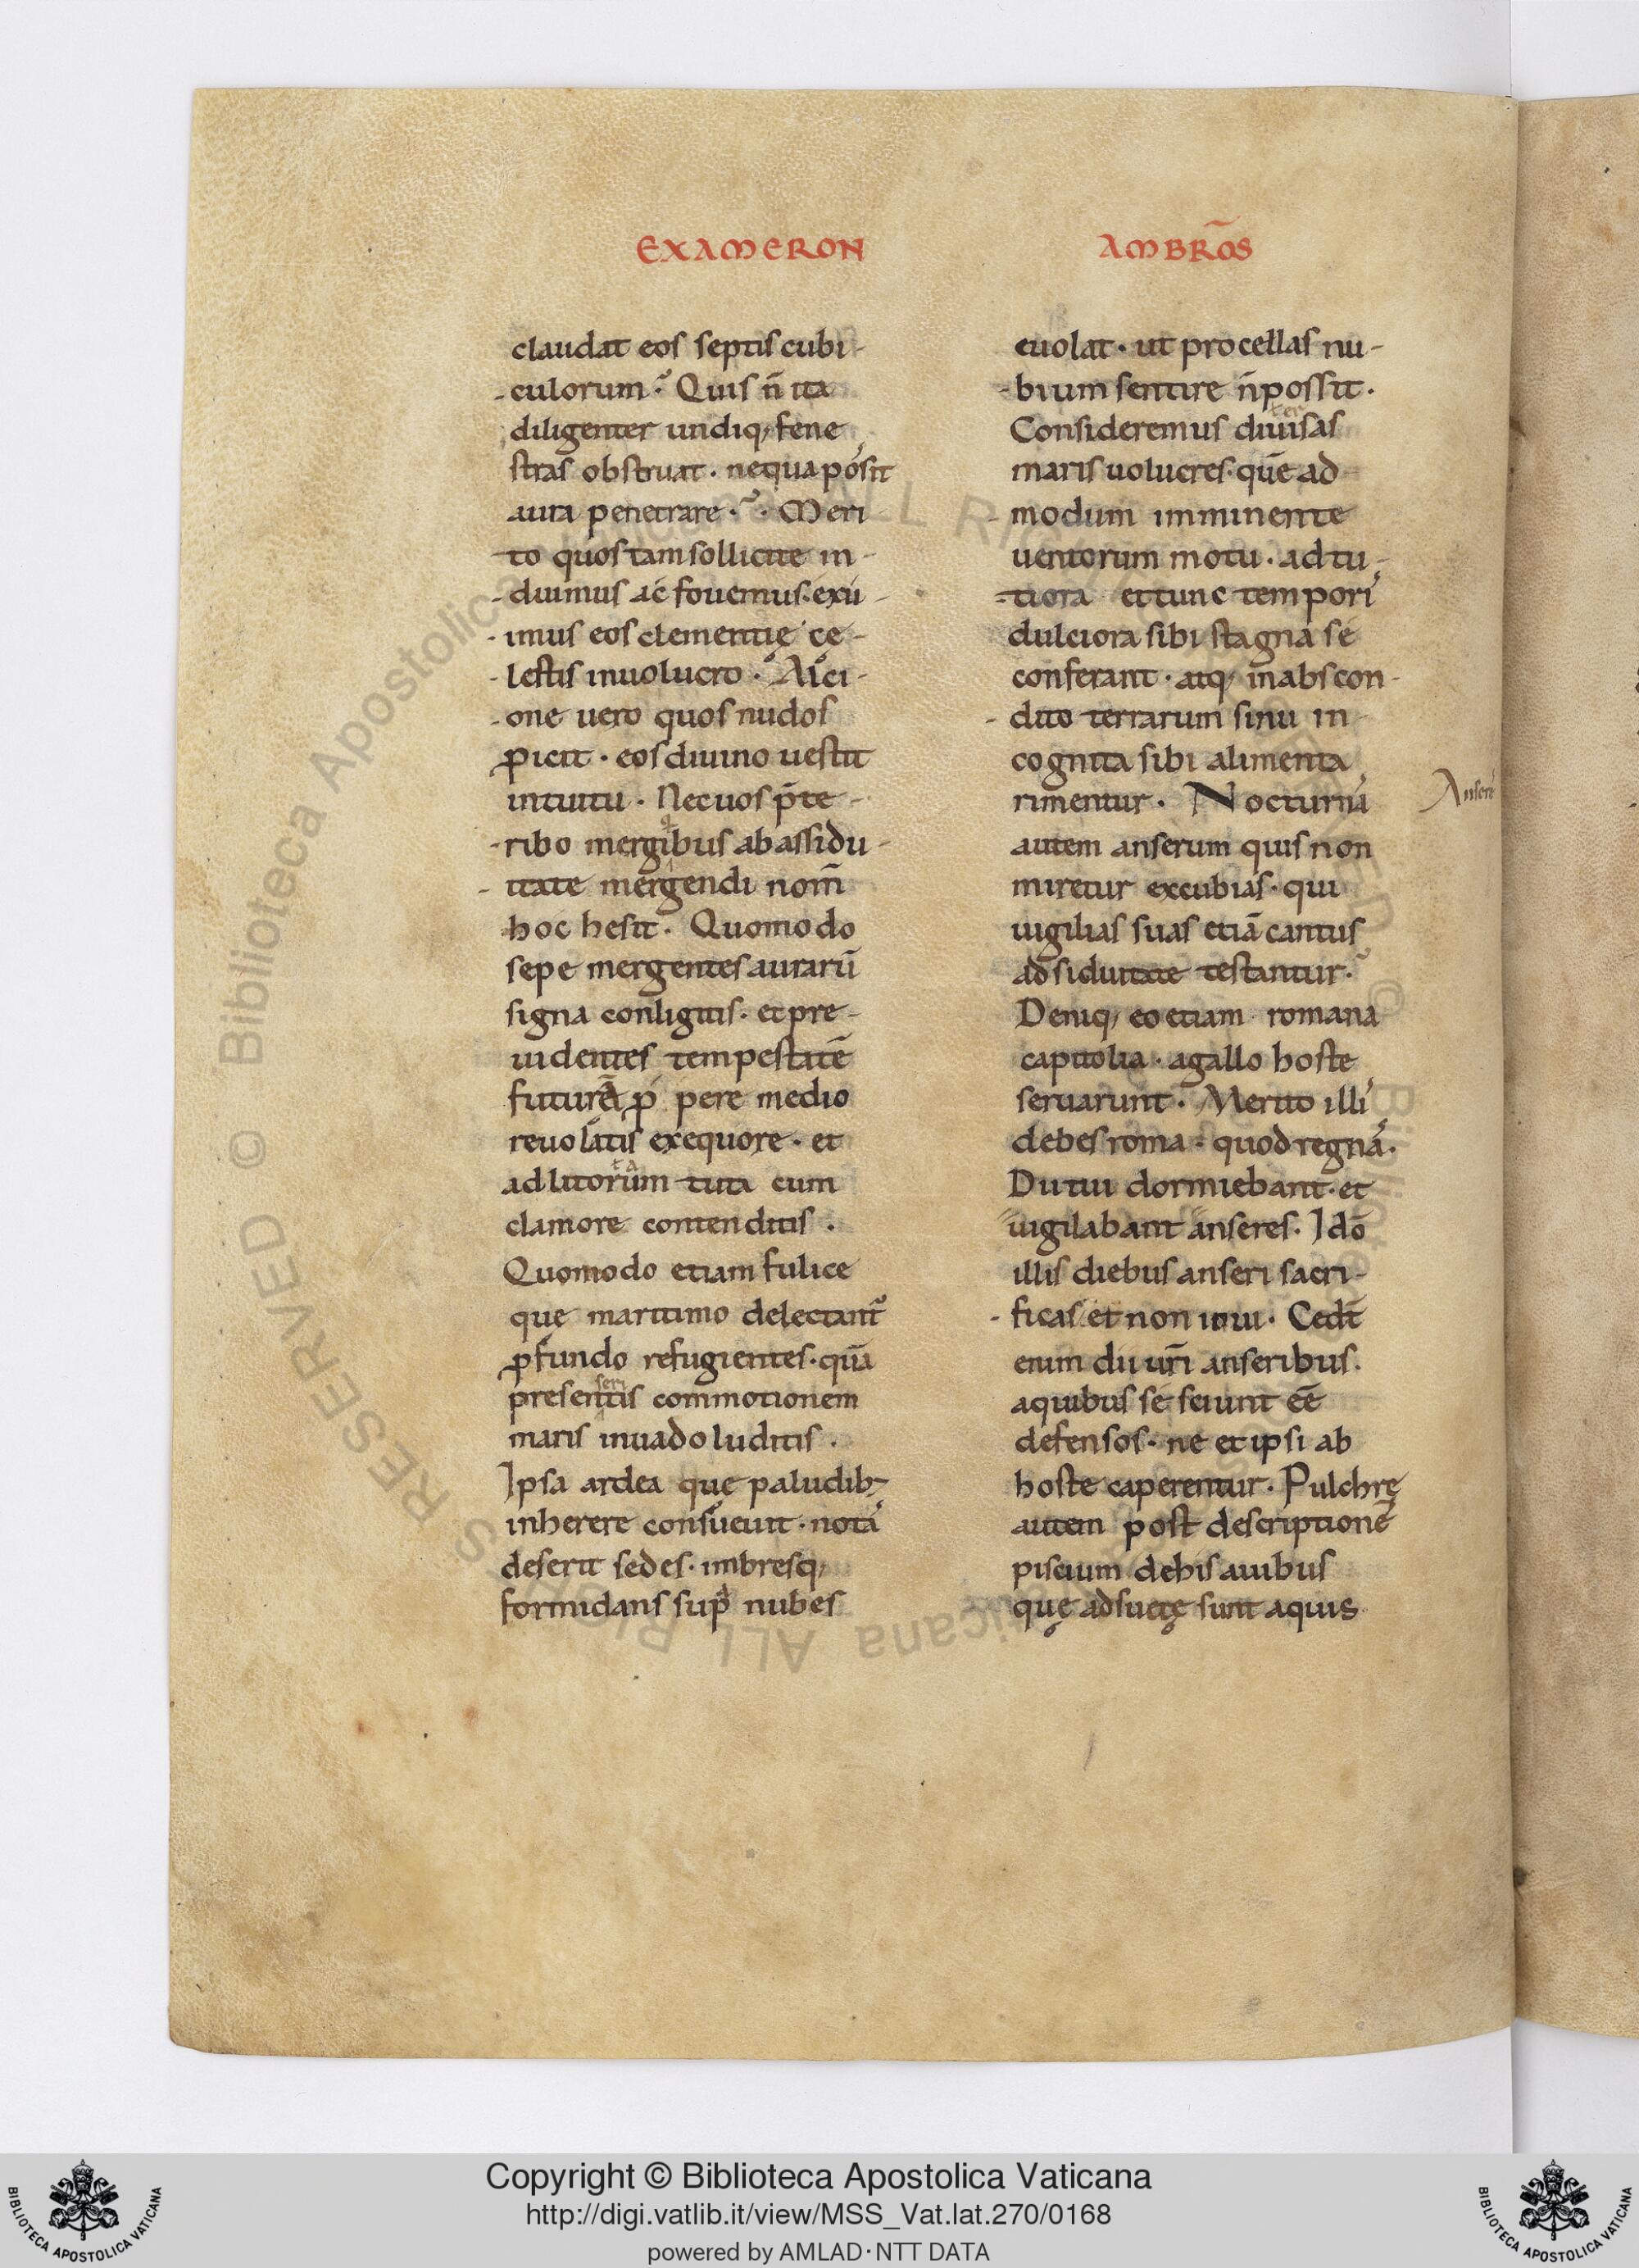 EXAMERON
AMBRO̅S
claudat eos septis cubi-
culorum? Quis n̄ ita
diligenter undiq; fene
stras obstruat. nequa posit
aura penetrare? Meri
to quos tam sollicite in-
duimus ac fouemus. exu-
imus eos clementię ce-
lestis inuolucro. Alci-
one uero quos nudos
ꝓicit. eos diuino uestit
intuitu. Nec uos p̄te-
ribo mergibus ab assidu-
itate mergendi nom̄
hoc hesit. Quomodo
sepe mergentes aurarū
signa conligitis. et pre-
uidentes tempestatē
futurā ꝓpere medio
reuolatis ex equore. et
ad litorum tuta cum
clamore contenditis.
Quomodo etiam fulice
que maritimo delectant᷑
ꝓfundo refugientes. quā
presentis commotionem
maris in uado luditis.
Ipsa ardea quę paludib;
inherere consueuit. nota
deserit sedes. imbresq;
formidans supra nubes
euolat. ut procellas nu-
bium sentire n̄ possit.
Consideremus diuisas
maris uolucres. quē ad
modum imminente
uentorum motu. ad tu-
tiora et tunc tempori
dulciora sibi stagna se
conferant. atq; in abscon-
dito terrarum sinu in
cognita sibi alimenta
rimentur. Nocturna
Anserē
autem anserum quis non
miretur excubias. qui
uigilias suas etiā cantus
adsiduitate testantur?
Deniq; eo etiam romana
capitolia. a gallo hoste
seruarunt. Merito illi
debes roma. quod regna.
Dii tui dormiebant. et
uigilabant anseres. Idō
illis diebus anseri sacri-
ficas et non ioui. Cedt̄
enim dii ur̄i anseribus.
a quibus se sciunt eē
defensos. ne et ipsi ab
hoste caperentur. Pulchrę
autem post descriptionē
piscium de his auibus
quę adsuetę sunt aquis
© Biblioteca Apostolica Vaticana ALL RIGHTS RESERVED
Copyright © Biblioteca Apostolica Vaticana
http://digi.vatlib.it/view/MSS_Vat.lat.270/0168
powered by AMLAD·NTT DATA
BIBLIOTECA APOSTOLICA VATICANA
BIBLIOTECA APOSTOLICA VATICANA